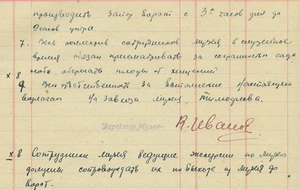 производить запор ворот с 3х часов дня до
7. Весь коллектив сотрудников музея в служебное
время обязан присматривать за сохранностью сада
оберегать плоды от хищений
x 8
9. Ответственный за выполнение настоящего
возлагаю на завхоза музея Тимофеева.
Директор Музея
К. Иванов
x 8 Сотрудники музея ведущие экскурсии по музею
должны сопровождать их по выходе из музея до
ворот.